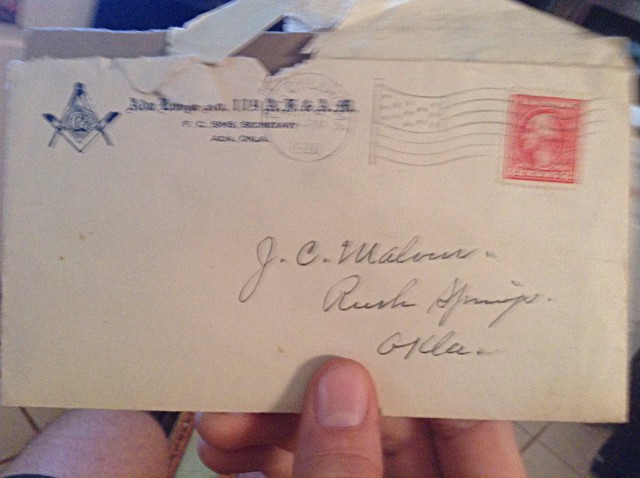 Ada Lodge no. 119 A.F.& A.M.
F. C. SIMS, SECRETARY
ADA, OKLA.
J. C. Malour.
Rush Springs.
Okla.